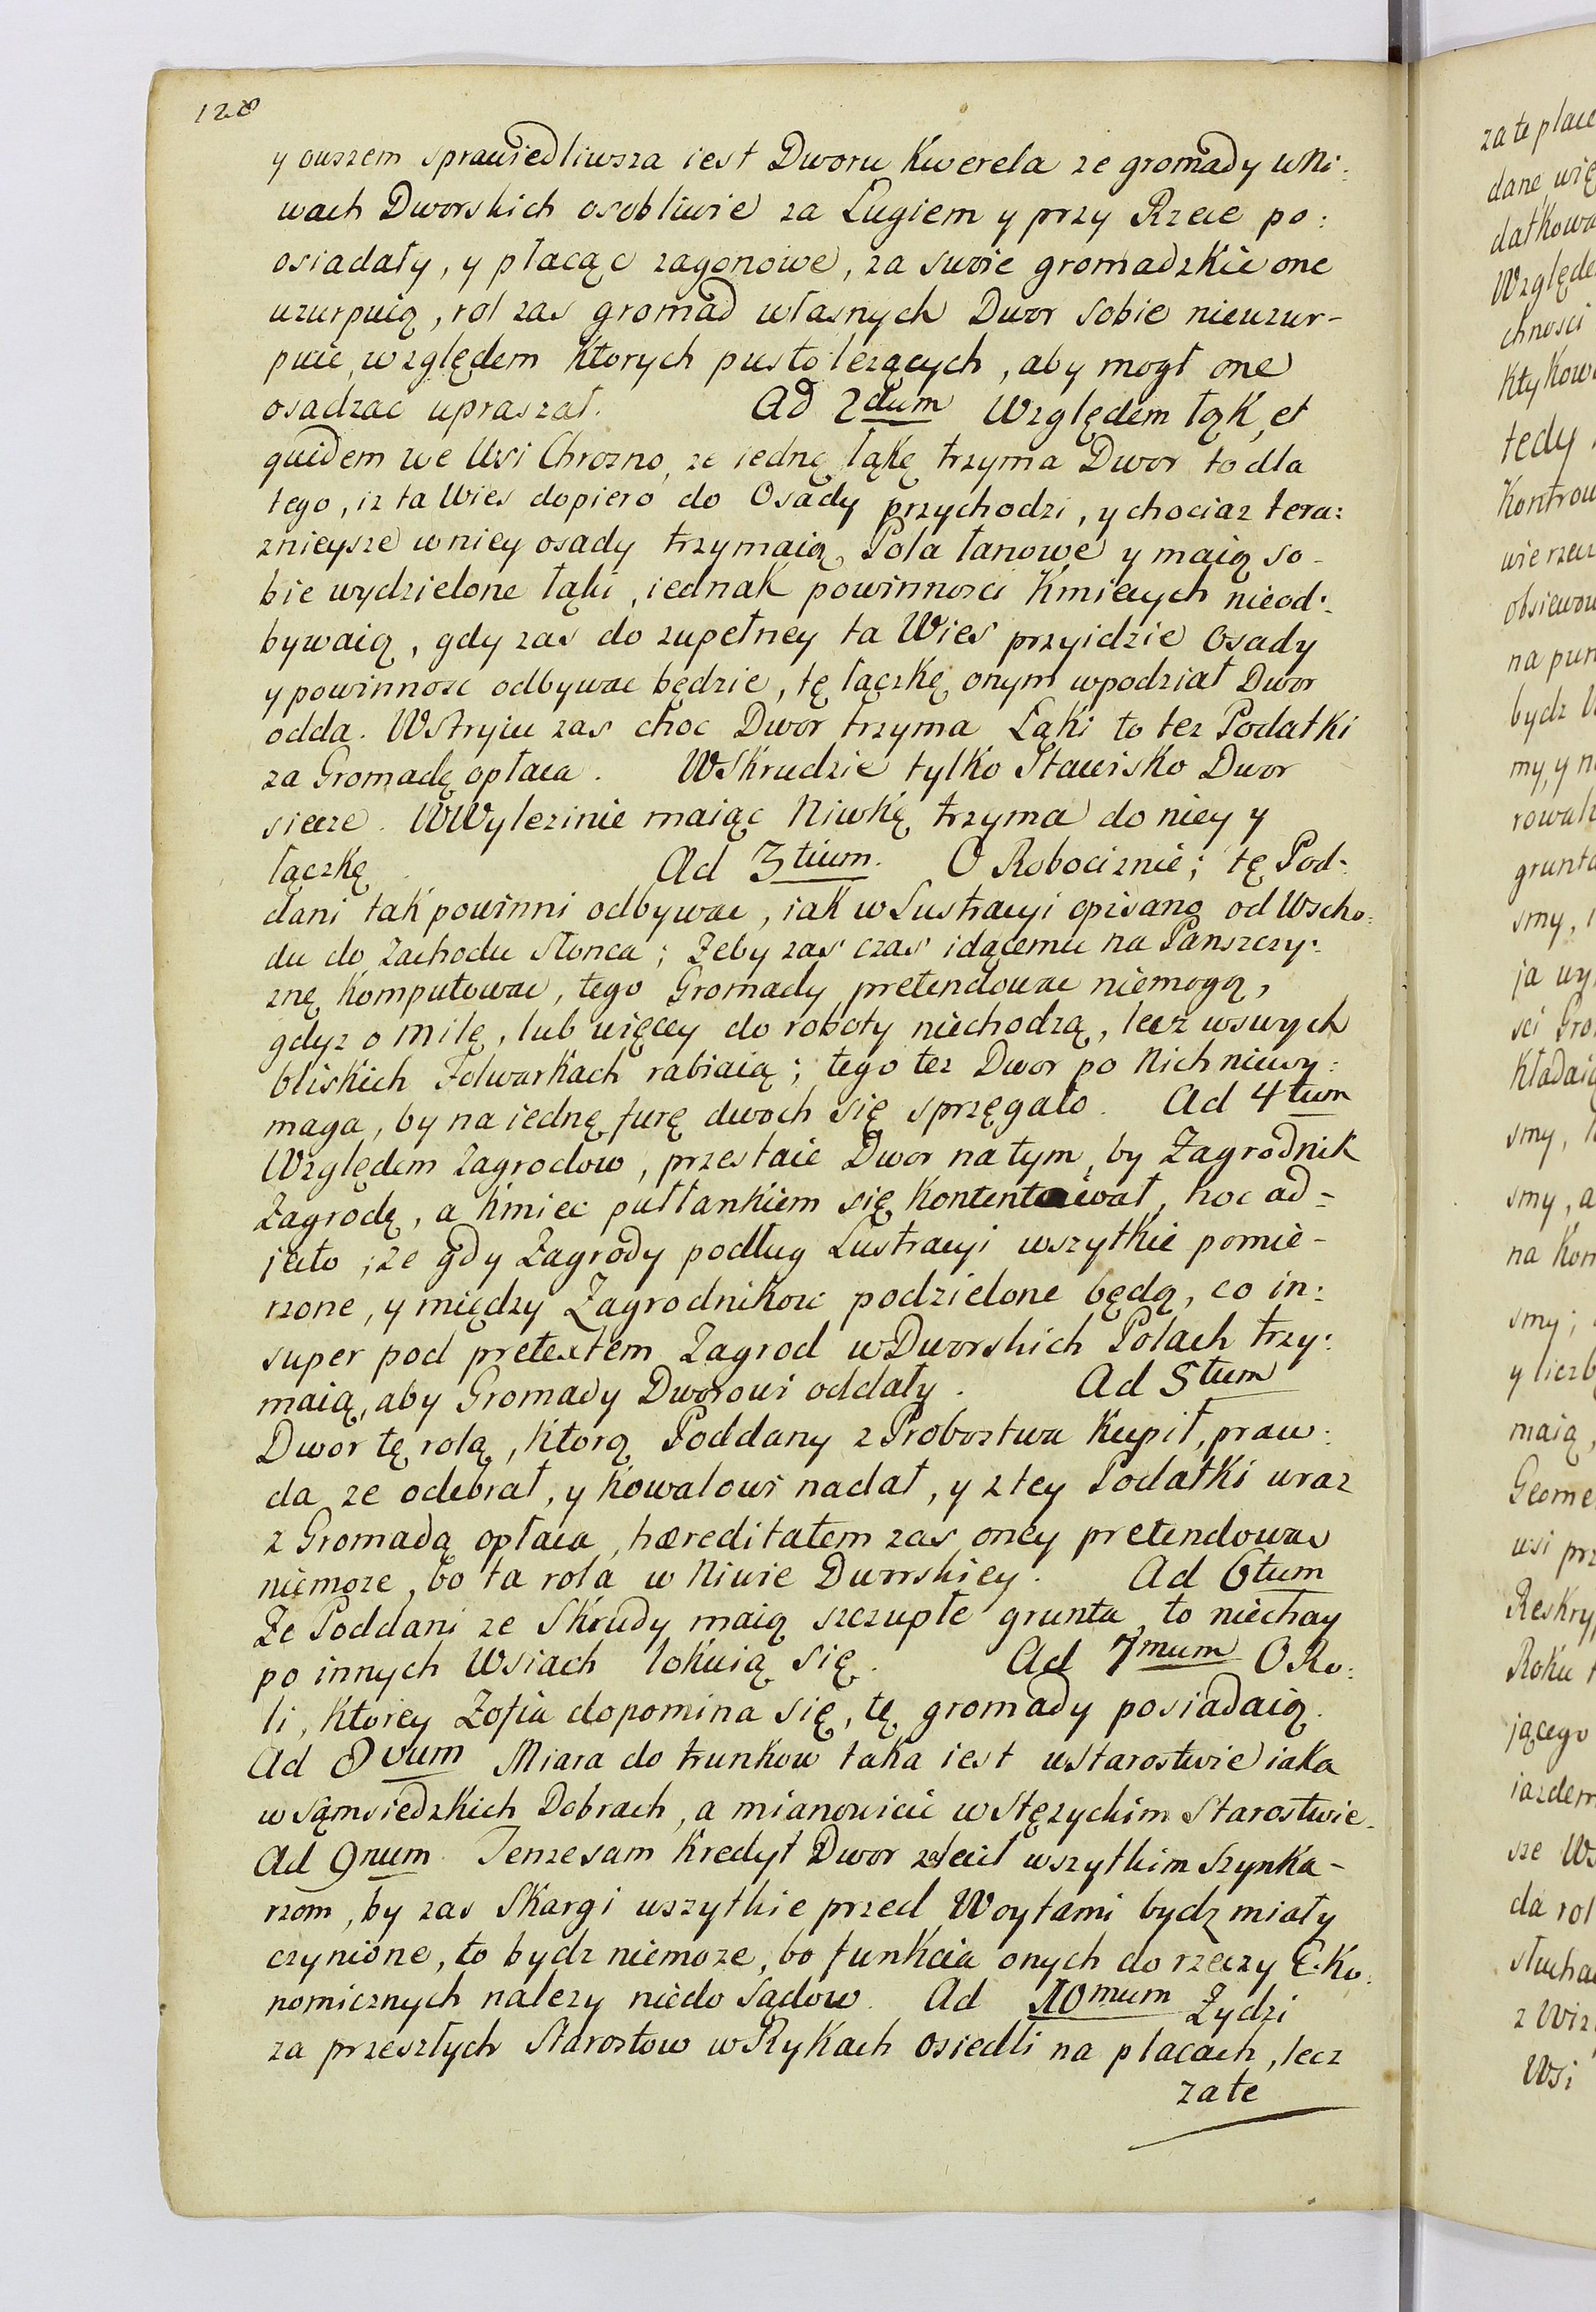 128
y owszem sprawiedliwsza iest Dworu Kwerela ze gromady w Ni:
wach Dworskich osobliwie za Ługiem y przy Rzece po:
osiadały, y płacąc zagonowe, za swoie gromadzkie one
uzurpuią, rol zas gromad własnych Dwor sobie nieuzur-
puie, względem ktorych pusto lezących, aby mogł one
osadzac upraszał. Ad 2dum Względem łąk, et
quidem we Wsi Chrozno, ze iednę łąkę trzyma Dwor to dla
tego, iz ta Wies dopiero do Osady przychodzi, y chociaz tera:
znieysze w niey osady trzymaią Pola łanowe y maią so-
bie wydzielone łąki, iednak powinnosci Kmiecych nieod:
bywaią, gdy zas do zupełney ta Wies przyidzie Osady
y powinnosc odbywac będzie, tę łączkę onym w podział Dwor
odda. W Stryiu zas choc Dwor trzyma Łąki to tez Podatki
za Gromadę opłaca. W Skrudzie tylko Stawisko Dwor
siecze. W Wylezinie maiąc Niwkę trzyma do niey y
łączkę. Ad 3tium. O Robociznie; tę Pod-
dani tak powinni odbywac, iak w Lustracyi opisano od Wscho:
du do Zachodu Słonca; Zeby zas czas idącemu na Panszczy:
znę komputowac, tego Gromady pretendowac niemogą,
gdyz o milę, lub więcey do roboty niechodzą, lecz w swych
bliskich Folwarkach rabiaią; tego tez Dwor po Nich niewy:
maga, by na iednę furę dwoch się sprzęgało. Ad 4tum
Względem Zagrodow, przestaie Dwor na tym, by Zagrodnik
Zagrodą, a kmiec pułłankiem się kontentował, hoc ad-
jecto; ze gdy Zagrody podług Lustracyi wszytkie pomie-
rzone, y między Zagrodnikow podzielone będą, co in:
super pod pretextem Zagrod w Dworskich Polach trzy:
maią, aby Gromady Dworowi oddały. Ad 5tum
Dwor tę rolą, ktorą Poddany z Probostwa kupił, praw:
da ze odebrał, y kowalowi nadał, y z tey Podatki wraz
z Gromadą opłaca, hæreditatem zas oney pretendowac
niemoze, bo ta rola w Niwie Dworskiey. Ad 6tum
Ze Poddani ze Skrudy maią szczupłe grunta, to niechay
po innych Wsiach lokuią się. Ad 7mum O Ro:
li, ktorey Zofia dopomina się, tę gromady posiadaią.
Ad 8vum Miara do trunkow taka iest w Starostwie iaka
w sąmsiedzkich Dobrach, a mianowicie w Stęzyckim Starostwie.
Ad 9num. Tenze sam kredyt Dwor zlecił wszytkim Szynka-
rzom, by zas Skargi wszytkie przed Woytami bydz miały
czynione, to bydz niemoze, bo funkcia onych do rzeczy E.Ko:
nomicznych nalezy niedo Sądow. Ad 10mum Zydzi
za przeszłych Starostow w Rykach osiedli na placach, lecz
za te
za te place
dane, wię
datkowa
Względe
chnosci
Ktykow
tedy
Kontrow
wie rzecz
obsiewow
na pun
bydz W
my, y n
rowal
grunta
smy,
ja wy
sci Gro
Kładaią
smy,
smy, a
na Kom
smy;
y liczb
maią,
Geome
wsi prz
Reskryp
Roku
jącego
iazdem
sze Ws
da rol
słucha
z Wiz
Wsi